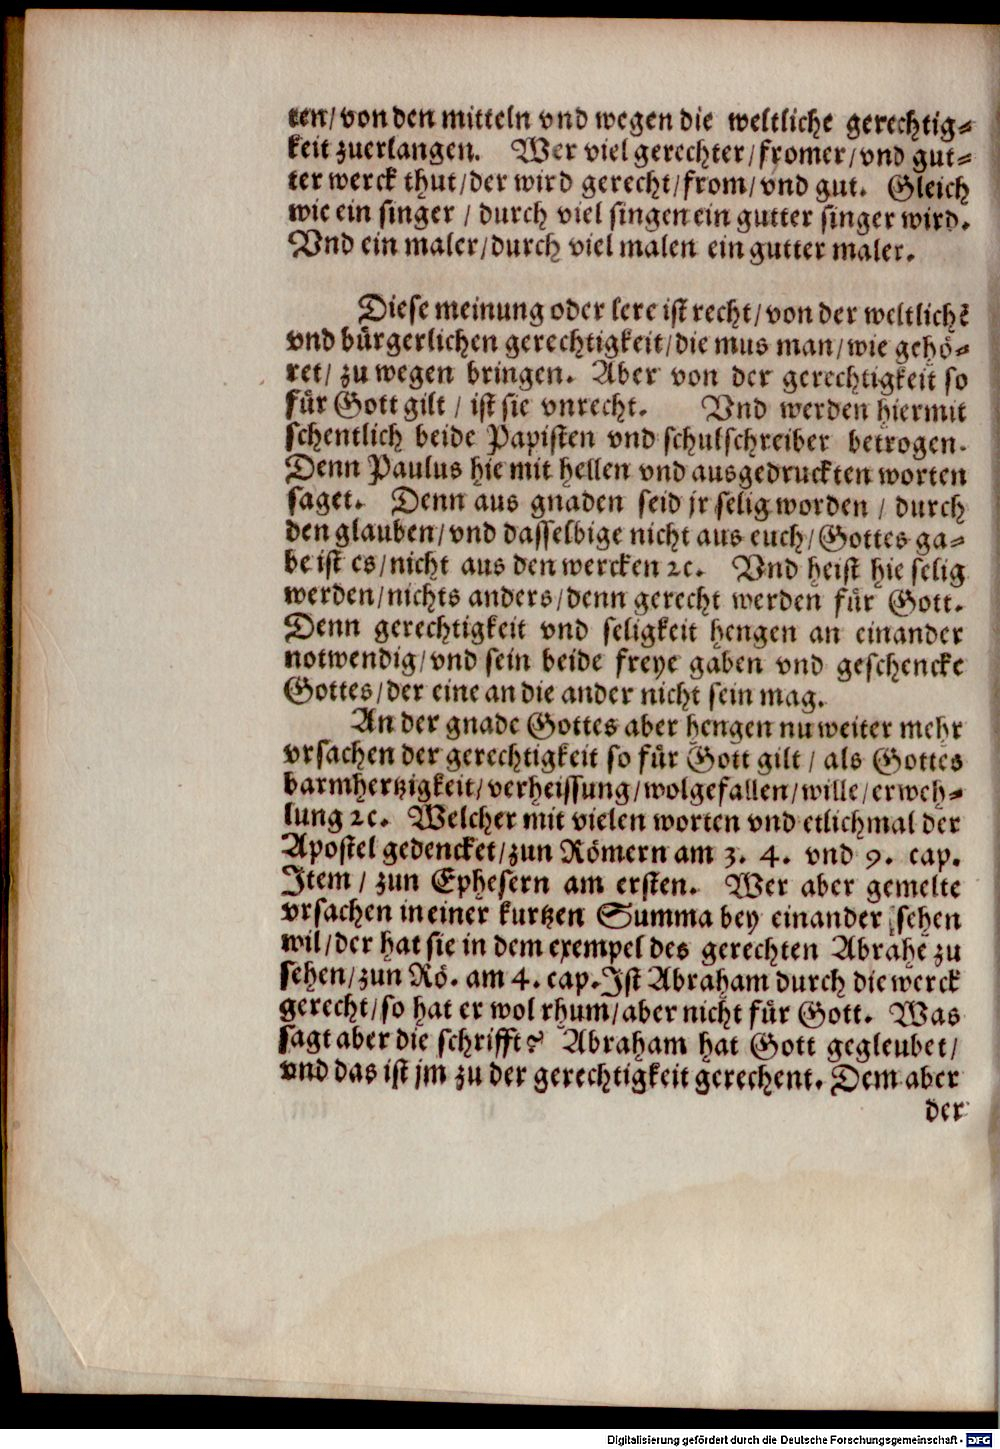 ten/ von den mitteln vnd wegen die weltliche gerechtig-
keit zuerlangen. Wer viel gerechter/ fromer/ vnd gut-
ter werck thut/ der wird gerecht/ from/ vnd gut. Gleich
wie ein singer / durch viel singen ein gutter singer wird.
Vnd ein maler/ durch viel malen ein gutter maler.
Diese meinung oder lere ist recht/ von der weltlichē
vnd bürgerlichen gerechtigkeit/ die mus man/ wie gehö-
ret/ zu wegen bringen. Aber von der gerechtigkeit so
für Gott gilt / ist sie vnrecht. Vnd werden hiermit
schentlich beide Papisten vnd schulschreiber betrogen.
Denn Paulus hie mit hellen vnd ausgedruckten worten
saget. Denn aus gnaden seid jr selig worden / durch
den glauben/ vnd dasselbige nicht aus euch/ Gottes ga-
be ist es/ nicht aus den wercken ꝛc. Vnd heist hie selig
werden/ nichts anders/ denn gerecht werden für Gott.
Denn gerechtigkeit vnd seligkeit hengen an einander
notwendig/ vnd sein beide freye gaben vnd geschencke
Gottes/ der eine an die ander nicht sein mag.
An der gnade Gottes aber hengen nu weiter mehr
vrsachen der gerechtigkeit so für Gott gilt / als Gottes
barmhertzigkeit/ verheissung/ wolgefallen/ wille/ erweh-
lung ꝛc. Welcher mit vielen worten vnd etlichmal der
Apostel gedencket/ zun Römern am 3. 4. vnd 9. cap.
Item / zun Ephesern am ersten. Wer aber gemelte
vrsachen in einer kurtzen Summa bey einander sehen
wil/ der hat sie in dem exempel des gerechten Abrahe zu
sehen/ zun Rö. am 4. cap. Ist Abraham durch die werck
gerecht/ so hat er wol rhum/ aber nicht für Gott. Was
sagt aber die schrifft? Abraham hat Gott gegleubet/
vnd das ist jm zu der gerechtigkeit gerechent. Dem aber
der
Digitalisierung gefördert durch die Deutsche Forschungsgemeinschaft - DFG